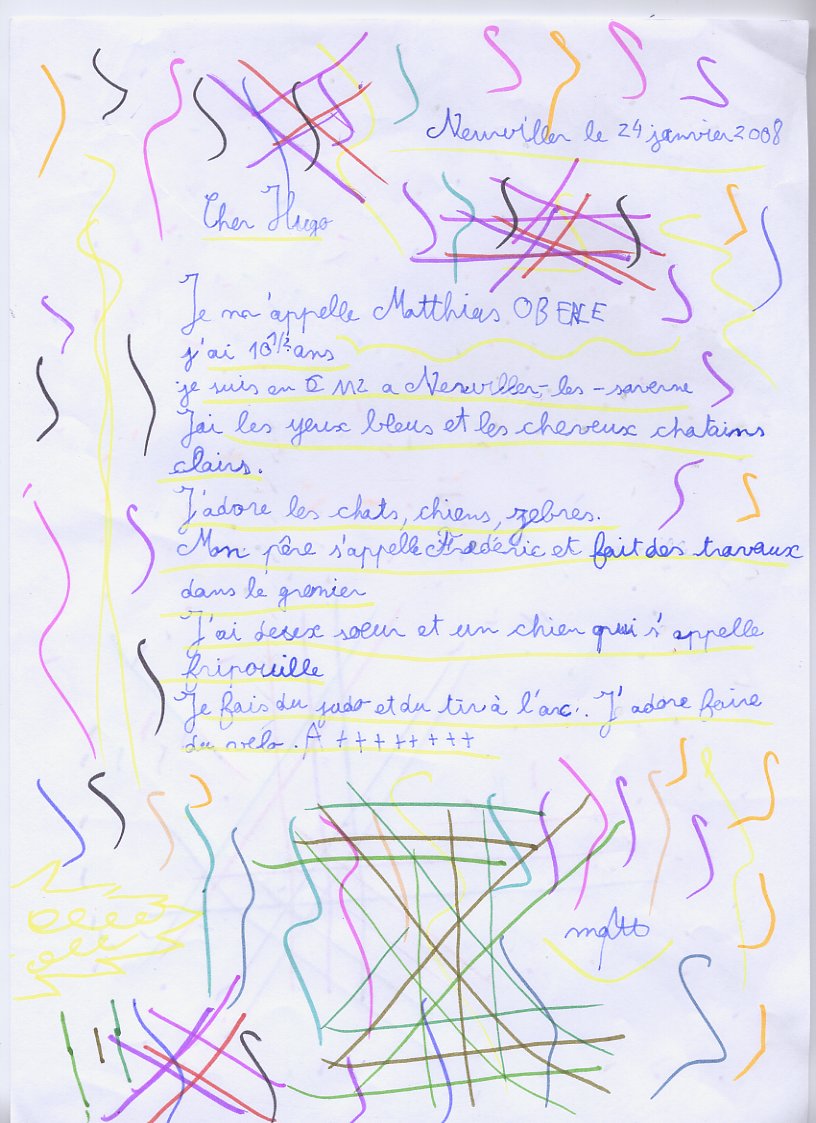 Neuwiller le 24 janvier 2008
Cher Hugo
Je m'appelle Matthias OBERLE
j'ai 10 1/2 ans
je suis en C M2 a Neuwiller-les-saverne
J'ai les yeux bleus et les cheveux chatains
clairs.
J'adore les chats, chiens, zebres.
Mon père s'appelle Frédéric et fait des travaux
dans le grenier
J'ai deux soeur et un chien qui s'appelle
fripouille
Je fais du judo et du tir à l'arc. J'adore faire
du velo. A ++++++++
matt